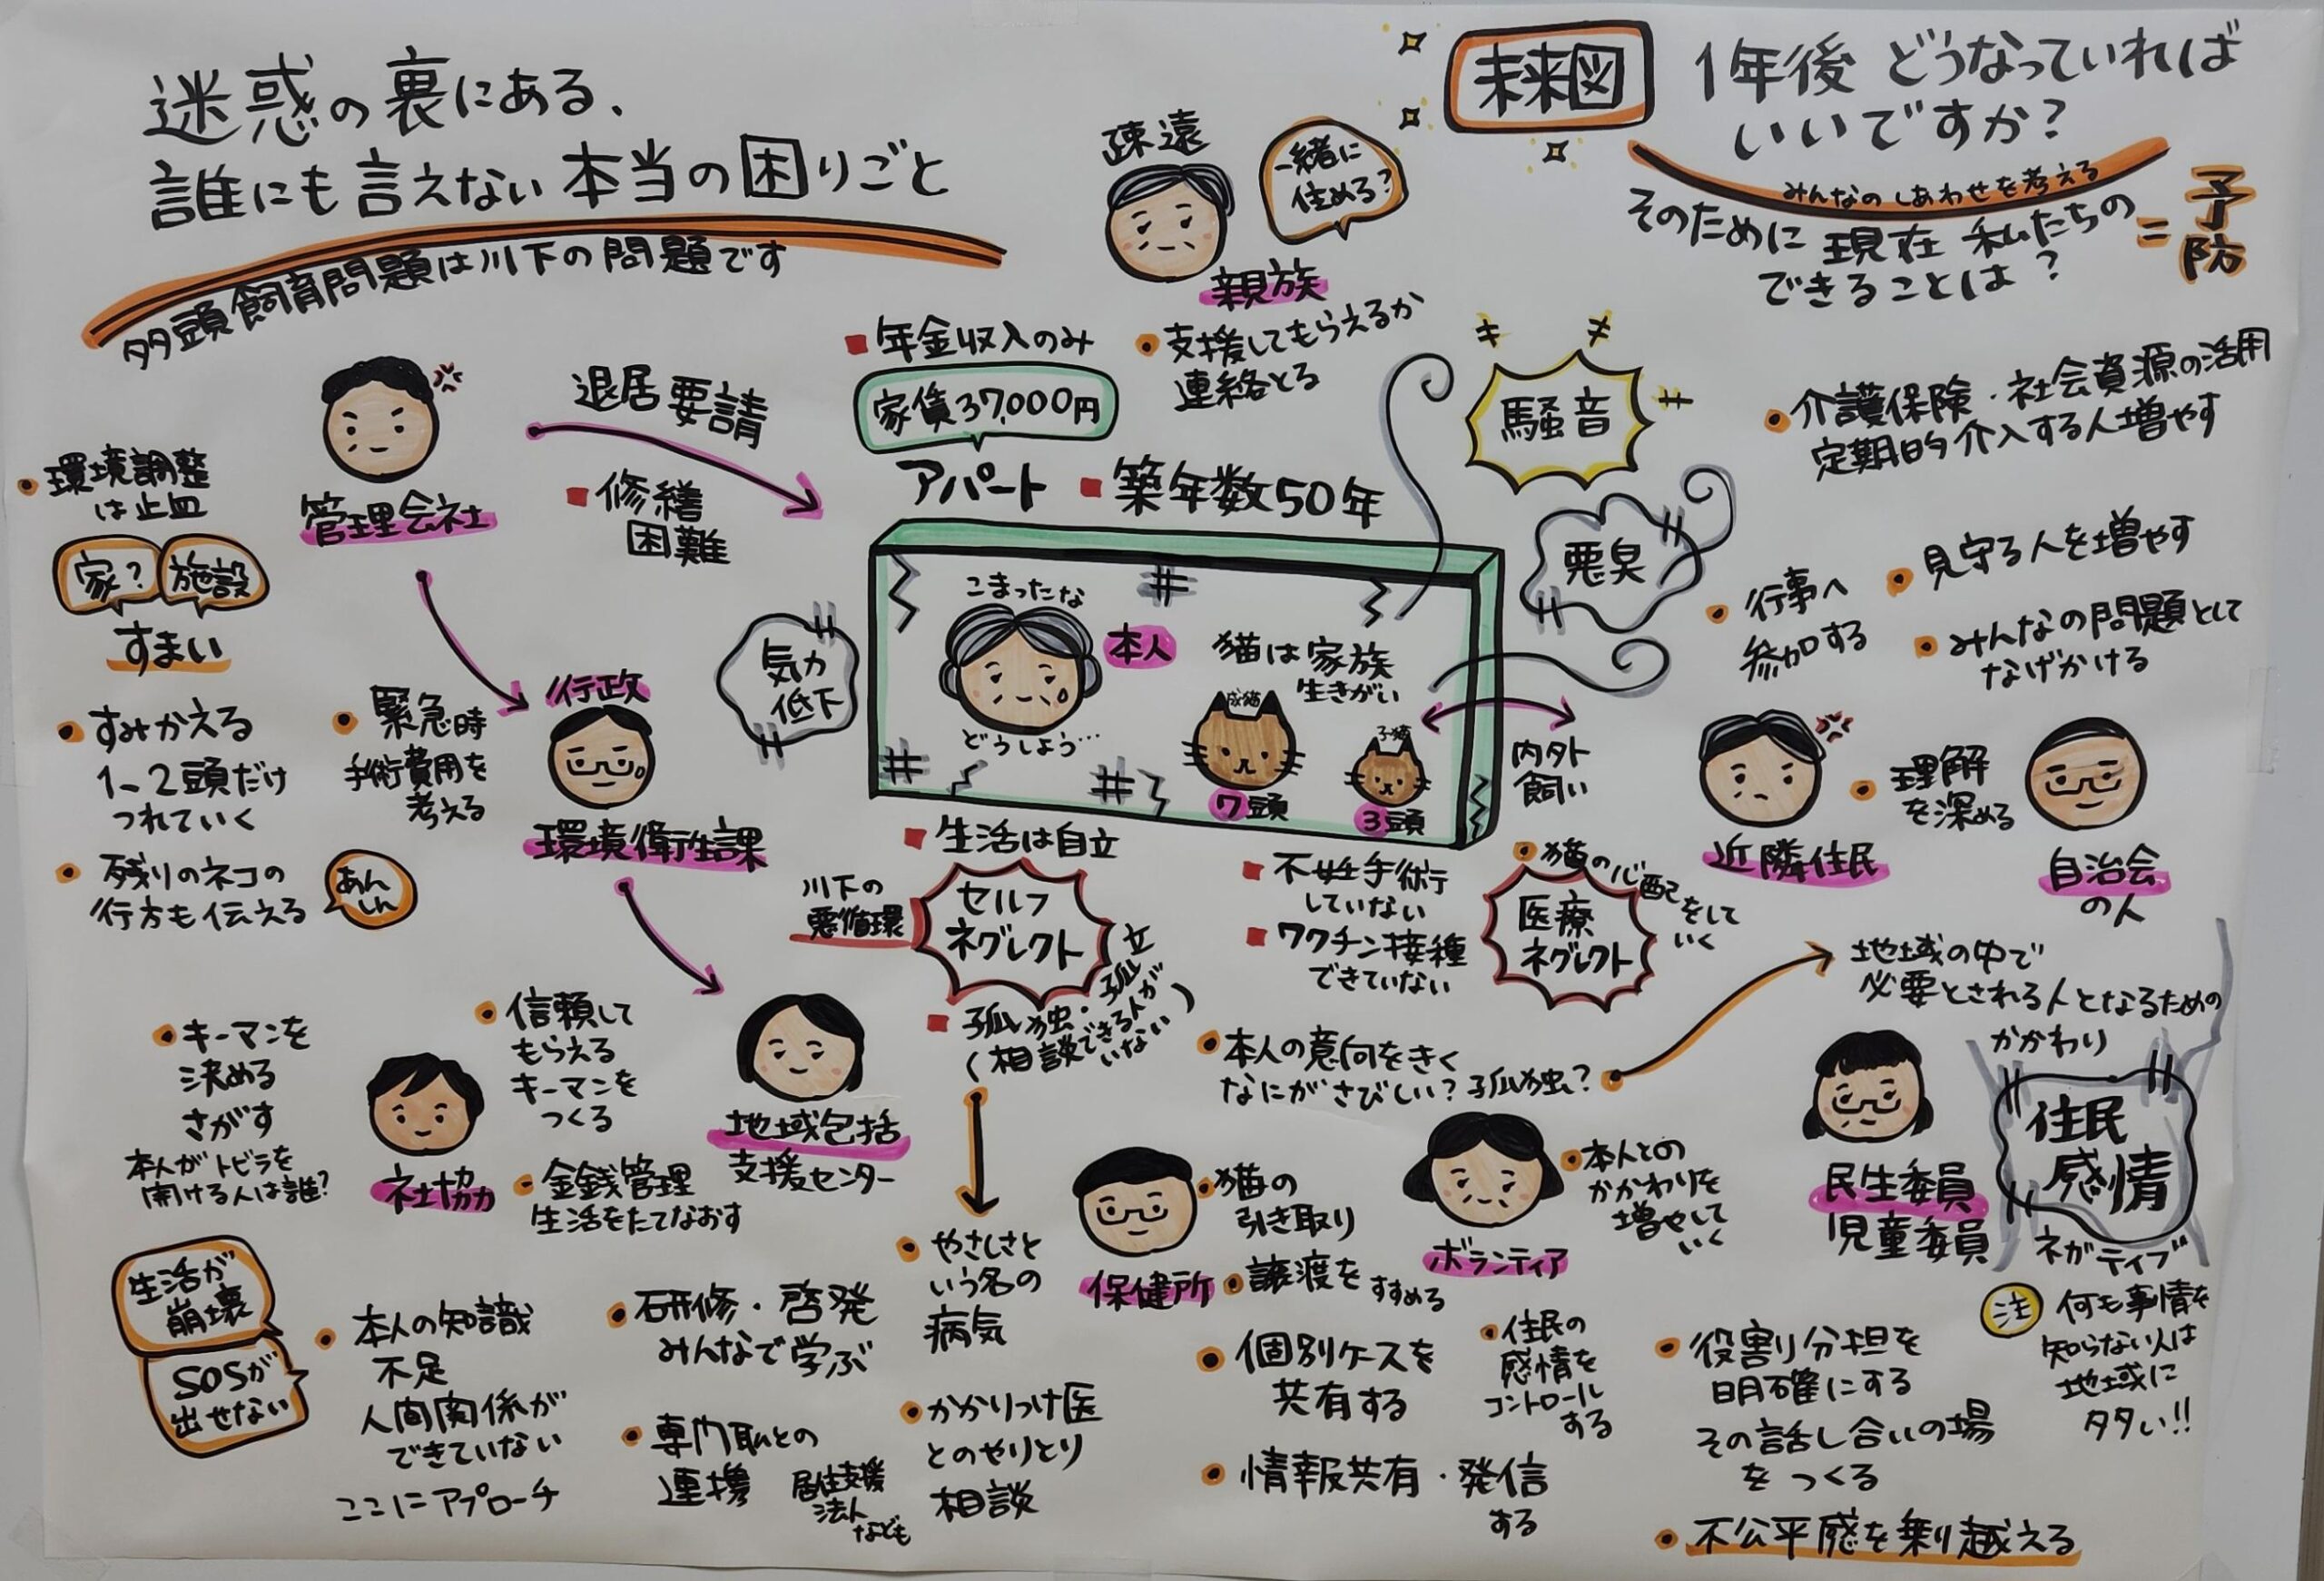 迷惑の裏にある、
誰にも言えない本当の困りごと
多頭飼育問題は川下の問題です
未来図
1年後 どうなっていれば
いいですか？
みんなのしあわせを考える
そのために 現在 私たちの
できることは？
＝予防
疎遠
一緒に
住める？
親族
支援してもらえるか
連絡とる
年金収入のみ
家賃37,000円
アパート
築年数50年
管理会社
退居要請
修繕
困難
環境調整
は止血
家？
施設
すまい
すみかえる
1、2頭だけ
つれていく
残りのネコの
行方も伝える
あん
しん
緊急時
手術費用を
考える
行政
環境衛生課
気力
低下
こまったな
本人
どうしよう…
猫は家族
生きがい
成猫
7頭
子猫
3頭
内外
飼い
騒音
悪臭
介護保険・社会資源の活用
定期的介入する人増やす
見守る人を増やす
行事へ
参加する
みんなの問題として
なげかける
近隣住民
理解
を深める
自治会
の人
生活は自立
川下の
悪循環
セルフ
ネグレクト
孤独・孤立
(相談できる人が
いない)
不妊手術
していない
ワクチン接種
できていない
猫の心配をして
いく
医療
ネグレクト
本人の意向をきく
なにがさびしい？孤独？
地域の中で
必要とされる人となるための
かかわり
キーマンを
決める
さがす
本人がトビラを
開ける人は誰？
社協
信頼して
もらえる
キーマンを
つくる
金銭管理
生活をたてなおす
地域包括
支援センター
やさしさと
いう名の
病気
保健所
猫の
引き取り
譲渡を すすめる
ボランティア
本人との
かかわりを
増やして
いく
民生委員
児童委員
住民
感情
ネガティブ
注
何も事情を
知らない人は
地域に
多い!!
生活が
崩壊
SOSが
出せない
本人の知識
不足
人間関係が
できていない
ここにアプローチ
研修・啓発
みんなで学ぶ
専門職との
連携
居住支援
法人
なども
かかりつけ医
とのやりとり
相談
個別ケースを
共有する
情報共有・発信
する
住民の
感情を
コントロール
する
役割分担を
明確にする
その話し合いの場
をつくる
不公平感を乗り越える